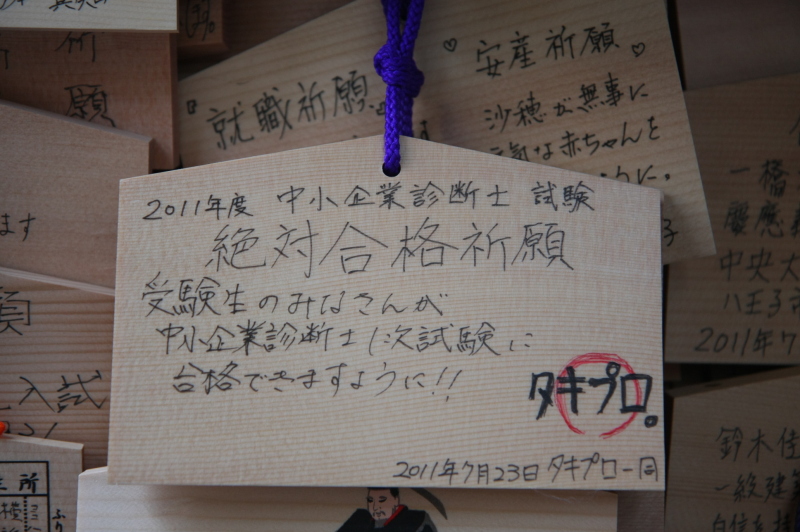 2011年度 中小企業診断士 試験
絶対合格祈願
受験生のみなさんが
中小企業診断士1次試験に
合格できますように!!
タキプロ。
2011年7月23日 タキプロ一同
就職祈願
安産祈願
沙穂が無事に
元気な赤ちゃんを
一橋
慶應
中央大
八王子
2011年7
鈴木佳
一級建築
願
ます
入試